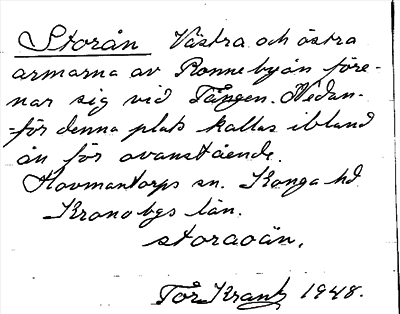 Storån Västra och östra
armarna av Ronnebyån före-
nar sig vid Tången. Nedan-
=för denna plats kallas ibland
ån för ovanstående.
Hovmantorps sn. Konga hd
Kronobgs län.
storaoån.
Tör Krantz 1948.